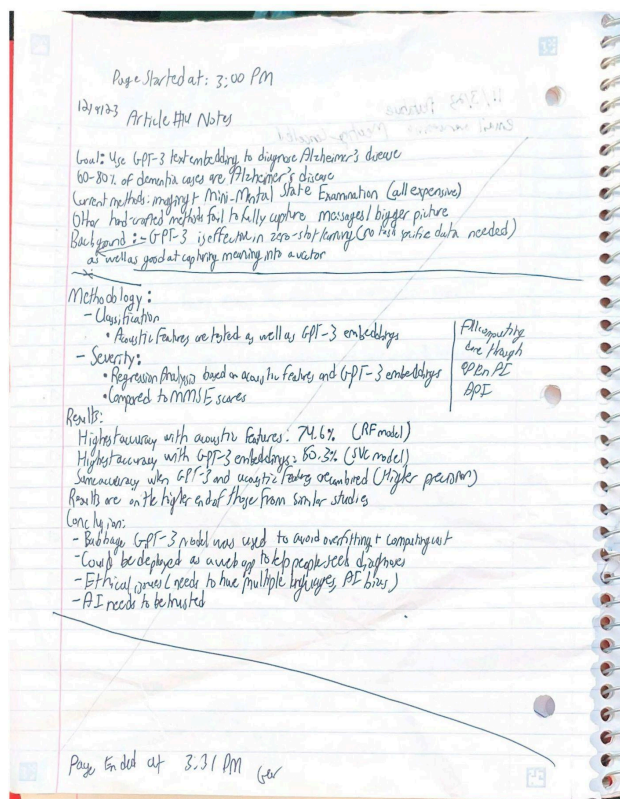 Page Started at: 3:00 PM
12/4/23 Article #14 Notes
Goal: Use GPT-3 text embedding to diagnose Alzheimer's disease
60-80% of dementia cases are Alzheimer's disease
Current methods: imaging + Mini-Mental State Examination (all expensive)
Other hand-crafted methods fail to fully capture messages/bigger picture
Background: - GPT-3 is effective in zero-shot learning (no task specific data needed)
as well as good at capturing meaning into a vector
Methodology:
- Classification
• Acoustic Features are tested as well as GPT-3 embeddings
- Severity:
• Regression Analysis based on acoustic features and GPT-3 embeddings
• Compared to MMSE scores
All computing
done through
OpenAI
API
Results:
Highest accuracy with acoustic features: 74.6% (RF model)
Highest accuracy with GPT-3 embeddings: 80.3% (SVC model)
Same accuracy when GPT-3 and acoustic features are combined (Higher precision)
Results are on the higher end of those from similar studies
Conclusion:
- Babbage GPT-3 model was used to avoid overfitting + computing cost
- Could be deployed as a web app to help people seek diagnoses
- Ethical issues (needs to have multiple languages, AI bias)
- AI needs to be trusted
Page Ended at 3:31 PM